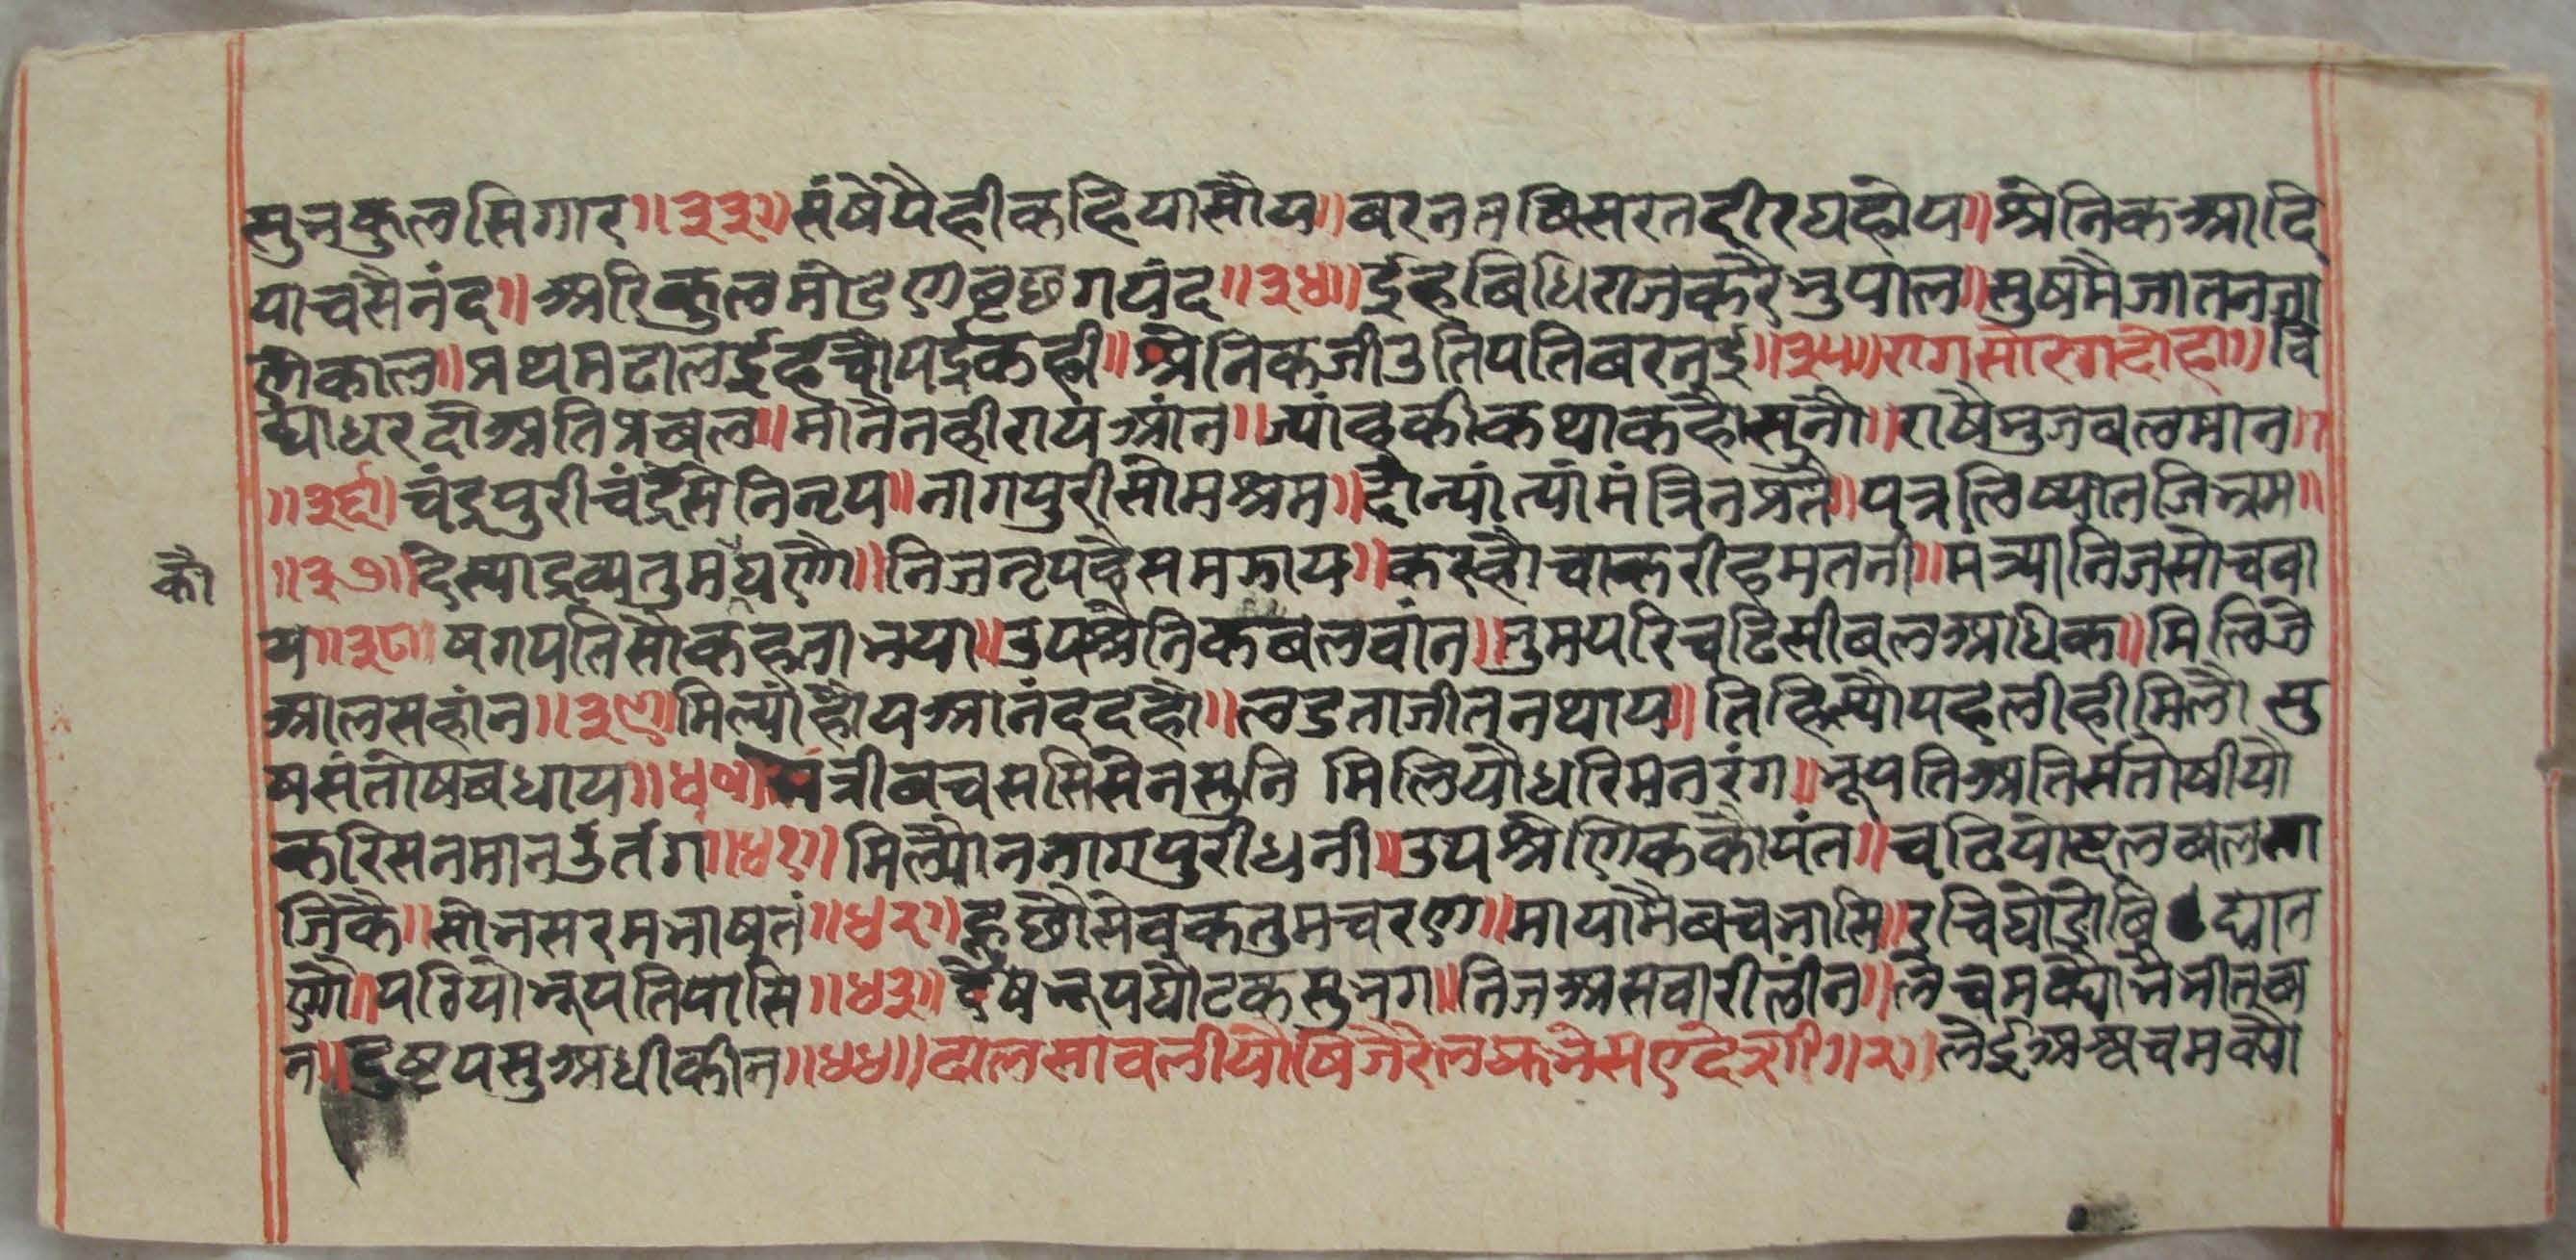 सुभकुलसिगार॥३३॥संषेपैहीकहियासोय॥बरनतबिसरतदीरघहोय॥श्रेनिकआदि
पाचसैनंद॥अरिकुलमोडणवृछगयंद॥३४॥ईहबिधिराजकरैभुपाल॥सुषमैजातनजा
णेकाल॥प्रथमढालईहचौपईकही॥श्रेनिकजीउतिपतिबरनई॥३५॥रागसोरगदोहा॥वि
द्याधरदोअतिप्रबल॥मानैनहीरायआंन॥ज्यांहकीकथाकहौसुनौ॥राषैभुजबलमान॥
॥३६॥चंद्रपुरीचंद्रसेनिनृप॥नागपुरीसोमश्रम॥दोन्यांत्यांमंत्रिनप्रतै॥पत्रलिष्योतजिभ्रम॥
॥३७॥दिस्याद्रव्यतुमघणै॥निजनृपहैसमझाय॥करस्हौचाकरीहमतनी॥मंत्र्यानिजसोचवा
कौ
य॥३८॥षगपतिसौकहताभया॥उपश्रैनिकबलवांन॥तुमपरिचढिसीबलअधिक॥मिलिजे
आलसहांन॥३९॥मिल्यांहोयआनंददहौ॥लडताजीतनथाय॥तिहिस्यौपहलीहीमिलौ सु
षसंतोषबधाय॥४०॥मंत्रीबचससिसेनसुनि मिलियौधरिमनरंग॥भूपतिअतिसंतोषीयौ
करिसनमानउतंग॥४१॥मिल्यौननागपुरीधनी॥उपश्रेणिककोपंत॥चढियोछलबलता
जिकै॥सोनसरमभाषतं॥४२॥हूछौसेवकतुमचरण॥मायामैबचभासि॥रचिघोडोबि द्यात
णौ॥पठियोभूपतिपासि॥४३॥देषभूपघोटकसुभग॥निजअसवारीलीन॥लेचमक्योभैभीतब
न॥दुष्टपसुअधीकीन॥४४॥ढालसावलीयोषिजैरेलझनेसएदेसी॥२॥लेईअश्वचमक्यो